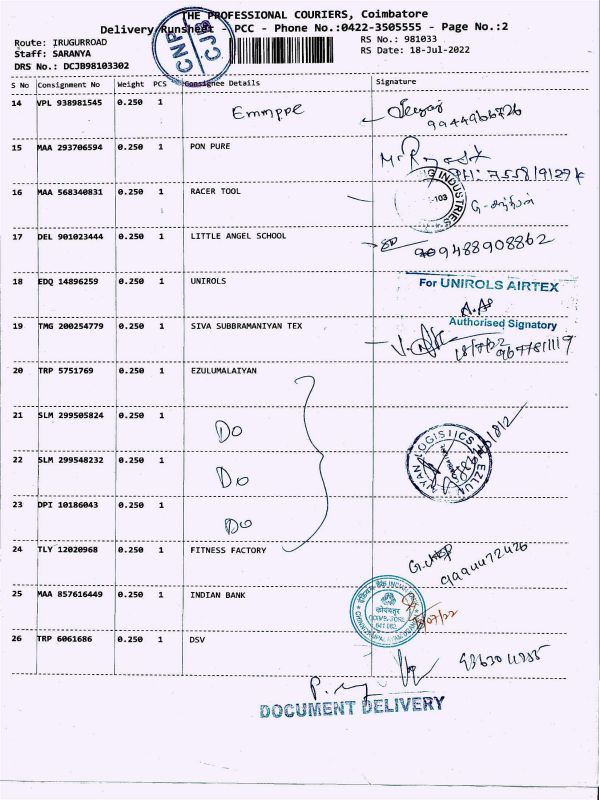 THE PROFESSIONAL COURIERS, Coimbatore
Delivery Runsheet - PCC - Phone No.:0422-3505555 - Page No.:2
Route: IRUGURROAD
RS No.: 981033
Staff: SARANYA
RS Date: 18-Jul-2022
DRS No.: DCJB98103302
CNP CJB
S No Consignment No Weight PCS Consignee Details Signature
14 VPL 938981545 0.250 1 Emmppe
9944966726
15 MAA 293706594 0.250 1 PON PURE
16 MAA 568340831 0.250 1 RACER TOOL
INDUSTRIES
17 DEL 901023444 0.250 1 LITTLE ANGEL SCHOOL
9488908862
18 EDQ 14896259 0.250 1 UNIROLS
For UNIROLS AIRTEX
Authorised Signatory
19 TMG 200254779 0.250 1 SIVA SUBBRAMANIYAN TEX
18/7/22
20 TRP 5751769 0.250 1 EZULUMALAIYAN
21 SLM 299505824 0.250 1 Do
22 SLM 299548232 0.250 1 Do
LOGISTICS
23 DPI 10186043 0.250 1 Do
24 TLY 12020968 0.250 1 FITNESS FACTORY
25 MAA 857616449 0.250 1 INDIAN BANK
26 TRP 6061686 0.250 1 DSV
DOCUMENT DELIVERY